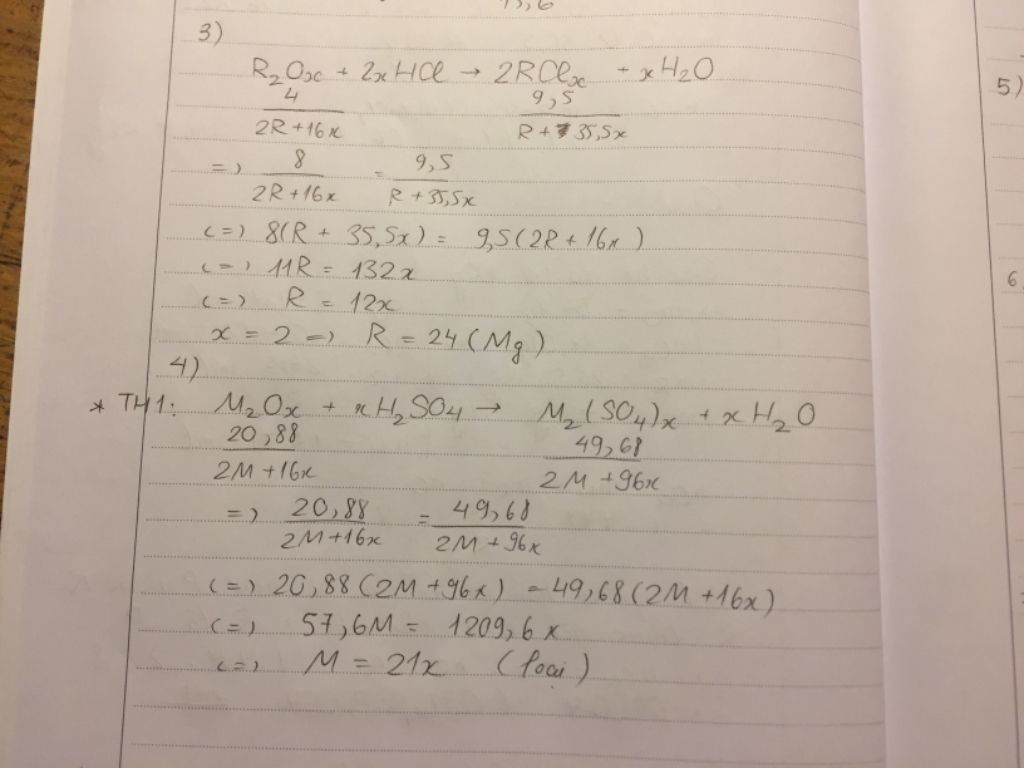 3)
R₂Oₓ + 2xHCl → 2RClₓ + xH₂O
4/(2R+16x) 9,5/(R+35,5x)
=> 8/(2R+16x) = 9,5/(R+35,5x)
<=> 8(R + 35,5x) = 9,5(2R + 16x)
<=> 11R = 132x
<=> R = 12x
x = 2 => R = 24 (Mg)
4)
* TH1: M₂Oₓ + xH₂SO₄ → M₂(SO₄)ₓ + xH₂O
20,88/(2M+16x) 49,68/(2M+96x)
=> 20,88/(2M+16x) = 49,68/(2M+96x)
<=> 20,88(2M+96x) = 49,68(2M+16x)
<=> 57,6M = 1209,6x
<=> M = 21x (loại)
5)
6